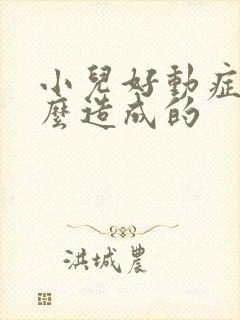 小兒好動症
麼造成的
洪城農